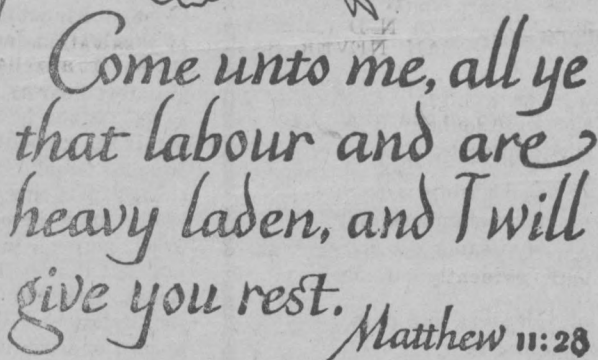 Come unto me, all ye
that labour and are
heavy laden, and I will
give you rest.
Matthew 11:28